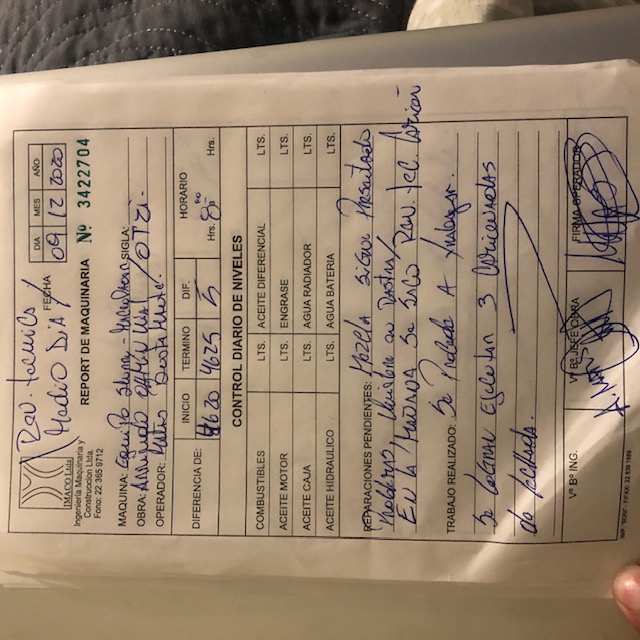 Rev. tecnica
Medio DiA
IMACO Ltda
Ingeniería Maquinaria y
Construccion Ltda.
Fono: 22 365 9712
FECHA DIA MES AÑO
09 12 2020
REPORT DE MAQUINARIA Nº 3422704
MAQUINA: Equipo Slurry - SIGLA:
OBRA: / OTZi-
OPERADOR: Mario
DIFERENCIA DE: INICIO TERMINO DIF. HORARIO
4620 4625 5 Hrs. 8 00 Hrs.
CONTROL DIARIO DE NIVELES
COMBUSTIBLES LTS. ACEITE DIFERENCIAL LTS.
ACEITE MOTOR LTS. ENGRASE LTS.
ACEITE CAJA LTS. AGUA RADIADOR LTS.
ACEITE HIDRAULICO LTS. AGUA BATERIA LTS.
REPARACIONES PENDIENTES: Mezcla sigue Presentado
Problemas, en Rastra/
EN LA MAÑANA Se SACO Rev. tec. Camion
TRABAJO REALIZADO: Se Procede A trabajar.
Se LoGRAN Ejecutar 3
de lechada.
Vº Bº ING. Vº Bº JEFE OBRA FIRMA OPERADOR
IMP. "BONI" - F/FAX: 22 839 1869